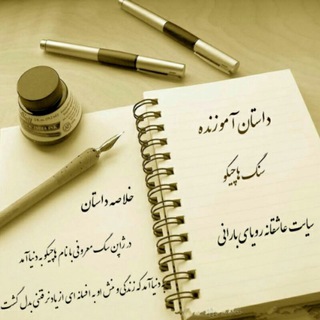 داستان آموزنده
سگ هاچیکو
سایت عاشقانه رویای بارانی
خلاصه داستان
در ژاپن سگ معروفی با نام هاچیکو به دنیا آمد
دنیا آمد که زندگی و منش او به افسانه ای از یاد نرفتنی بدل گشت